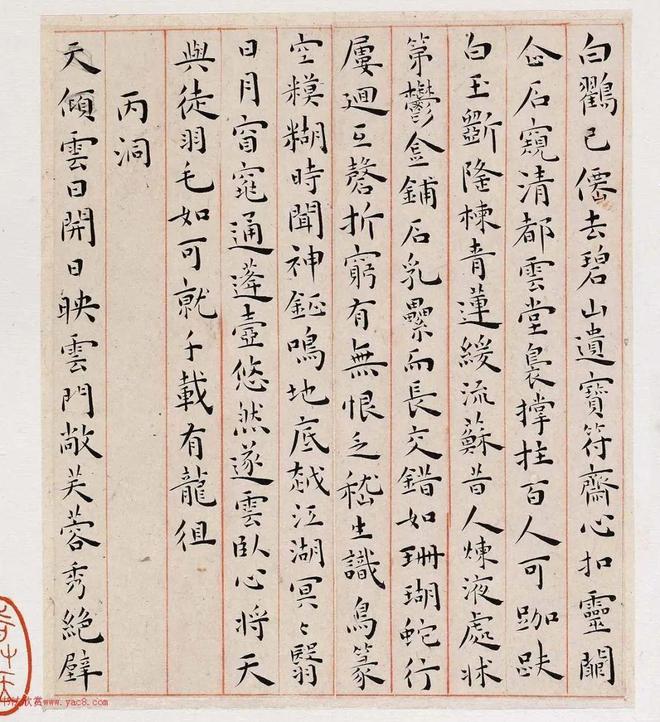 白鸛已僊去碧山遺寶符齋心扣靈關
企石窺清都雲堂裊撐拄百人可跏趺
白玉斲隆棟青蓮流蘇昔人煉液處牀
第鬱鋪石乳纍而長交錯如珊瑚蛇行
屢迴互磬折窮有無恨乏嵇生識鳥篆
空糢糊時聞神鉦鳴地底越江湖冥〻翳
日月窅窕通蓬壺悠然遂雲臥心將天
與徒羽毛如可就千載有龍徂
丙洞
天傾雲日開日映雲門敞芙蓉秀絕壁
欣赏www.yac8.com